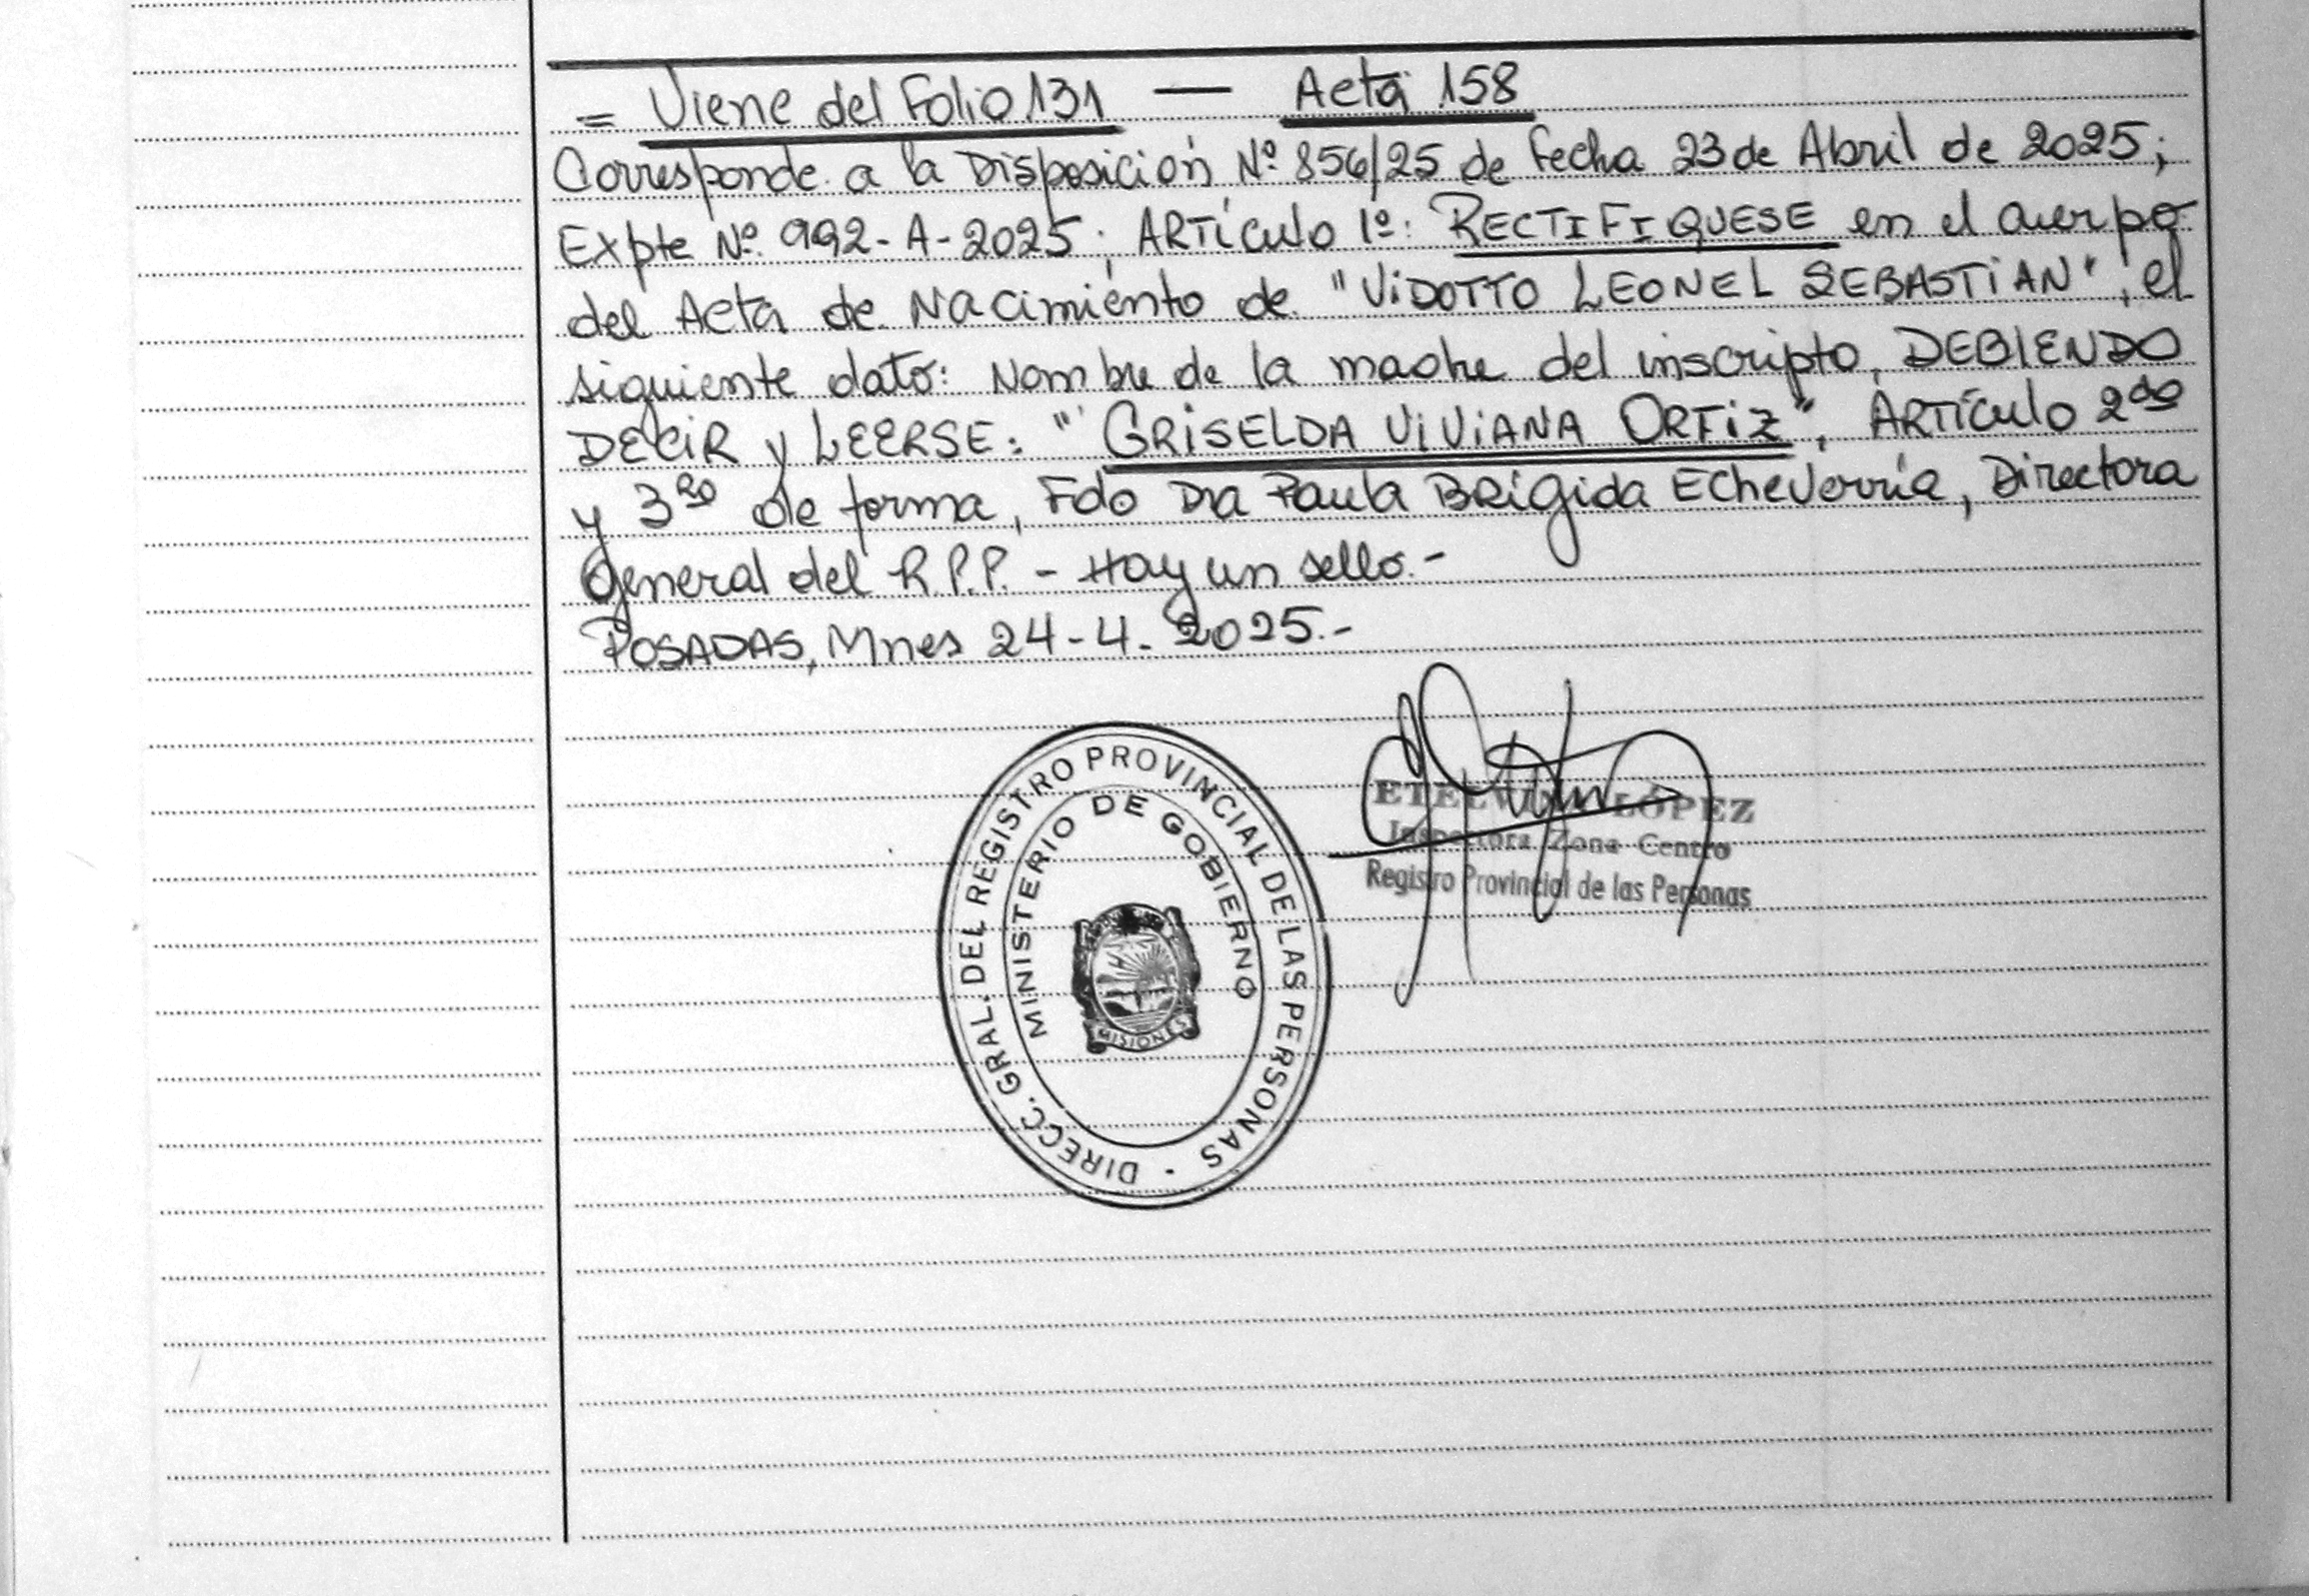 = Viene del Folio 131 — Acta 158
Corresponde a la Disposición Nº 856/25 de Fecha 23 de Abril de 2025;
Expte Nº 992-A-2025; ARTÍCULO 1º: RECTIFIQUESE en el cuerpo
del Acta de Nacimiento de "VIDOTTO LEONEL SEBASTIAN", el
siguiente dato: Nombre de la madre del inscripto, DEBIENDO
DECIR y LEERSE: "GRISELDA VIVIANA ORTIZ", ARTÍCULO 2do
y 3ro de forma, Fdo Dra Paula BRÍGIDA Echeverría, Directora
General del R.P.P. - Hay un sello.-
POSADAS, Mnes 24-4-2025.-
DIRECC. GRAL. DEL REGISTRO PROVINCIAL DE LAS PERSONAS
MINISTERIO DE GOBIERNO
MISIONES
LÓPEZ
Inspectora Zona Centro
Registro Provincial de las Personas